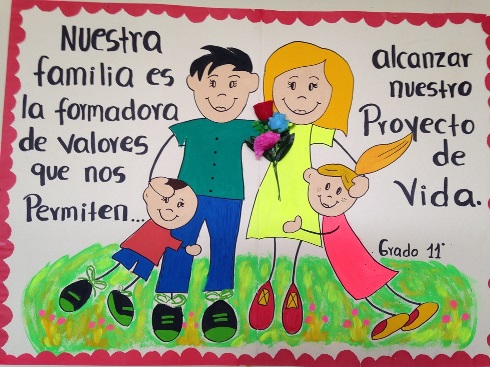 Nuestra
familia es
la formadora
de valores
que nos
Permiten...
alcanzar
nuestro
Proyecto
de
Vida.
Grado 11°